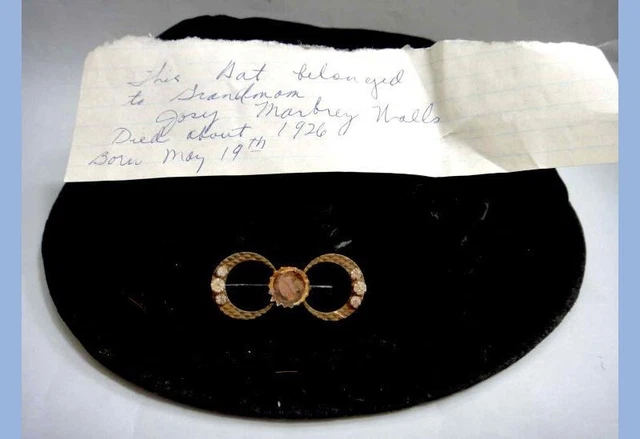 This Hat belonged
to Grandmom
Josy Marbrey Walls
Died about 1926
Born May 19th